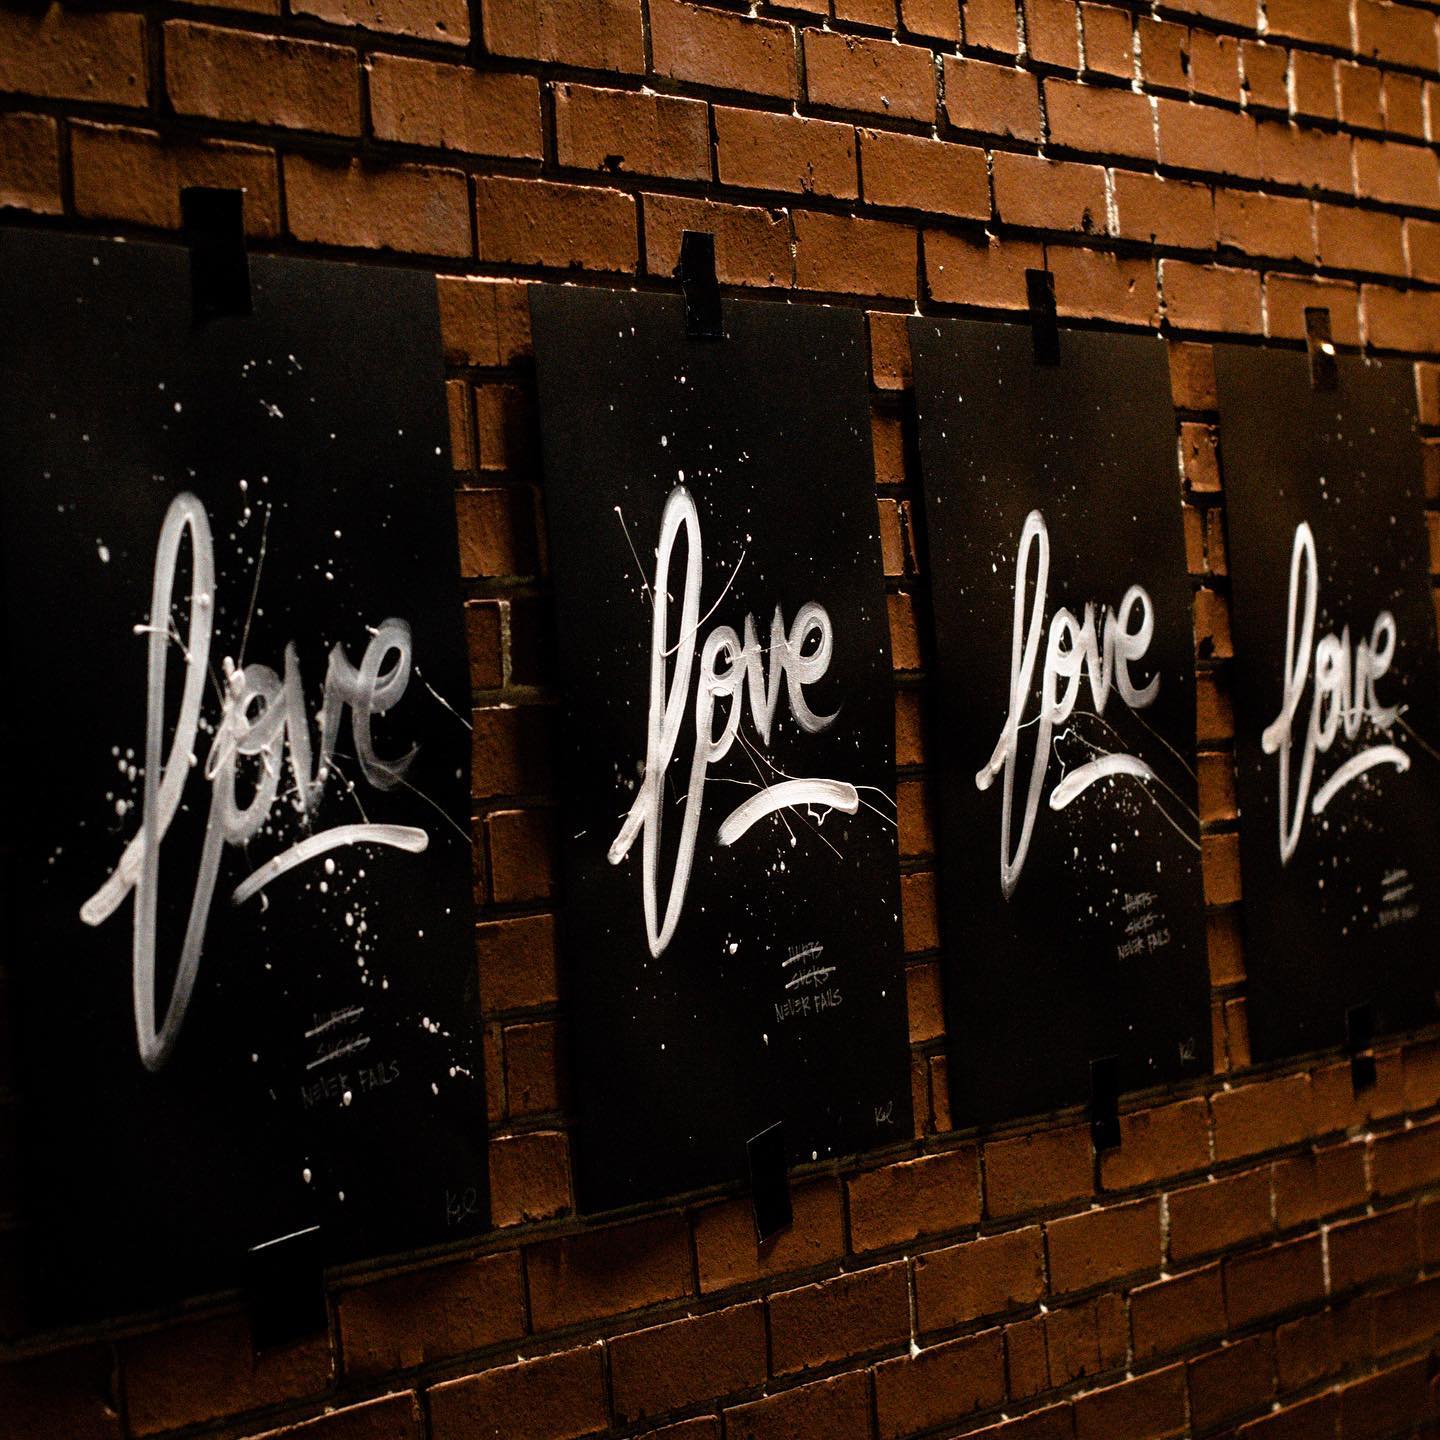 love
HURTS
SUCKS
NEVER FAILS
Kel
love
HURTS
SUCKS
NEVER FAILS
Kel
love
HURTS
SUCKS
NEVER FAILS
love